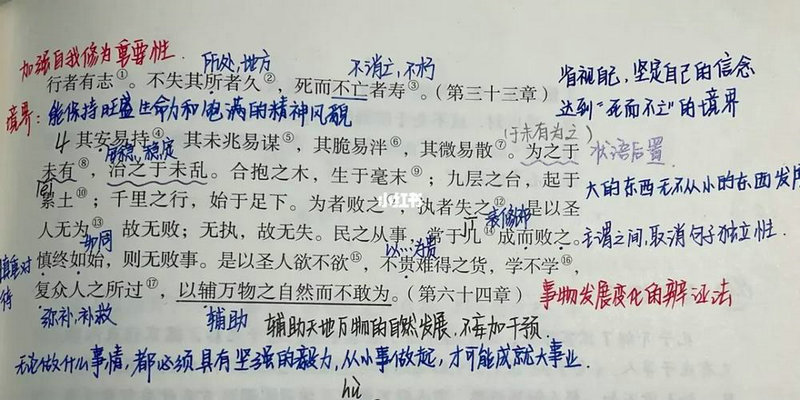 加强自我修为重要性.
所处,地方
不消亡,不朽
行者有志①。不失其所者久②，死而不亡者寿③。（第三十三章）
省视自己,坚定自己的信念
达到"死而不亡"的境界
境界: 能保持旺盛生命力和饱满的精神风貌
4 其安易持④，其未兆易谋⑤，其脆易泮⑥，其微易散⑦。为之于
安稳,稳定
(于未有为之)
状语后置
未有⑧，治之于未乱。合抱之木，生于毫末⑨；九层之台，起于
累土⑩；千里之行，始于足下。为者败之，执者失之⑫。是以圣
大的东西无不从小的东西发展
小红书
人无为⑬，故无败；无执，故无失。民之从事，常于几⑭成而败之。
如同
主谓之间,取消句子独立性.
慎终如始，则无败事。是以圣人欲不欲⑮，不贵难得之货，学不学⑯，
以…为贵
复众人之所过⑰，以辅万物之自然而不敢为。（第六十四章）
事物发展变化的辨证法
弥补,补救
辅助
辅助天地万物的自然发展,不妄加干预.
无论做什么事情,都必须具有坚强的毅力,从小事做起,才可能成就大事业.
hù